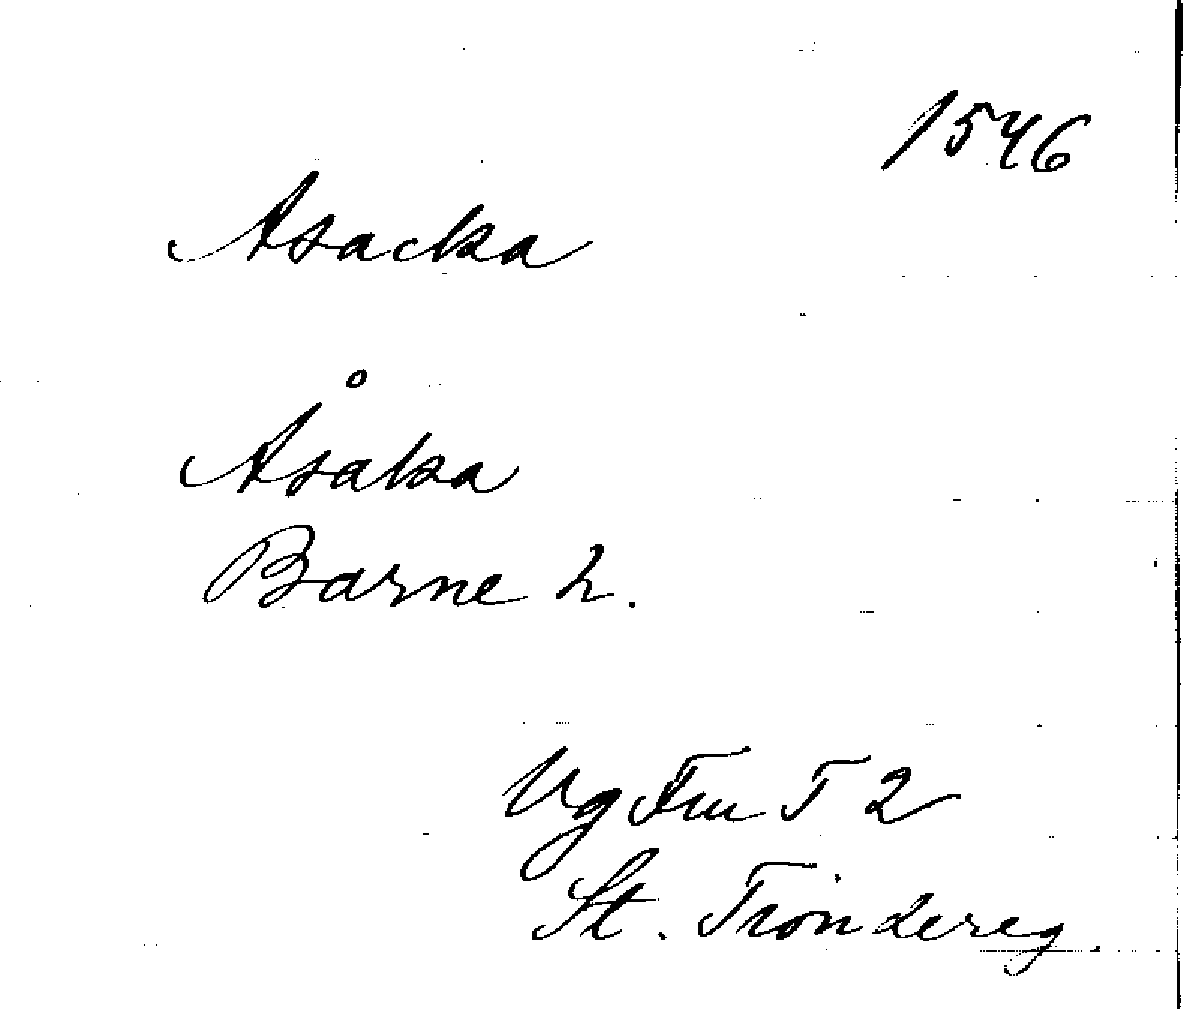 1546
Asacka
Åsaka
Barne h.
Vg Fru T 2
St. Tiondereg.